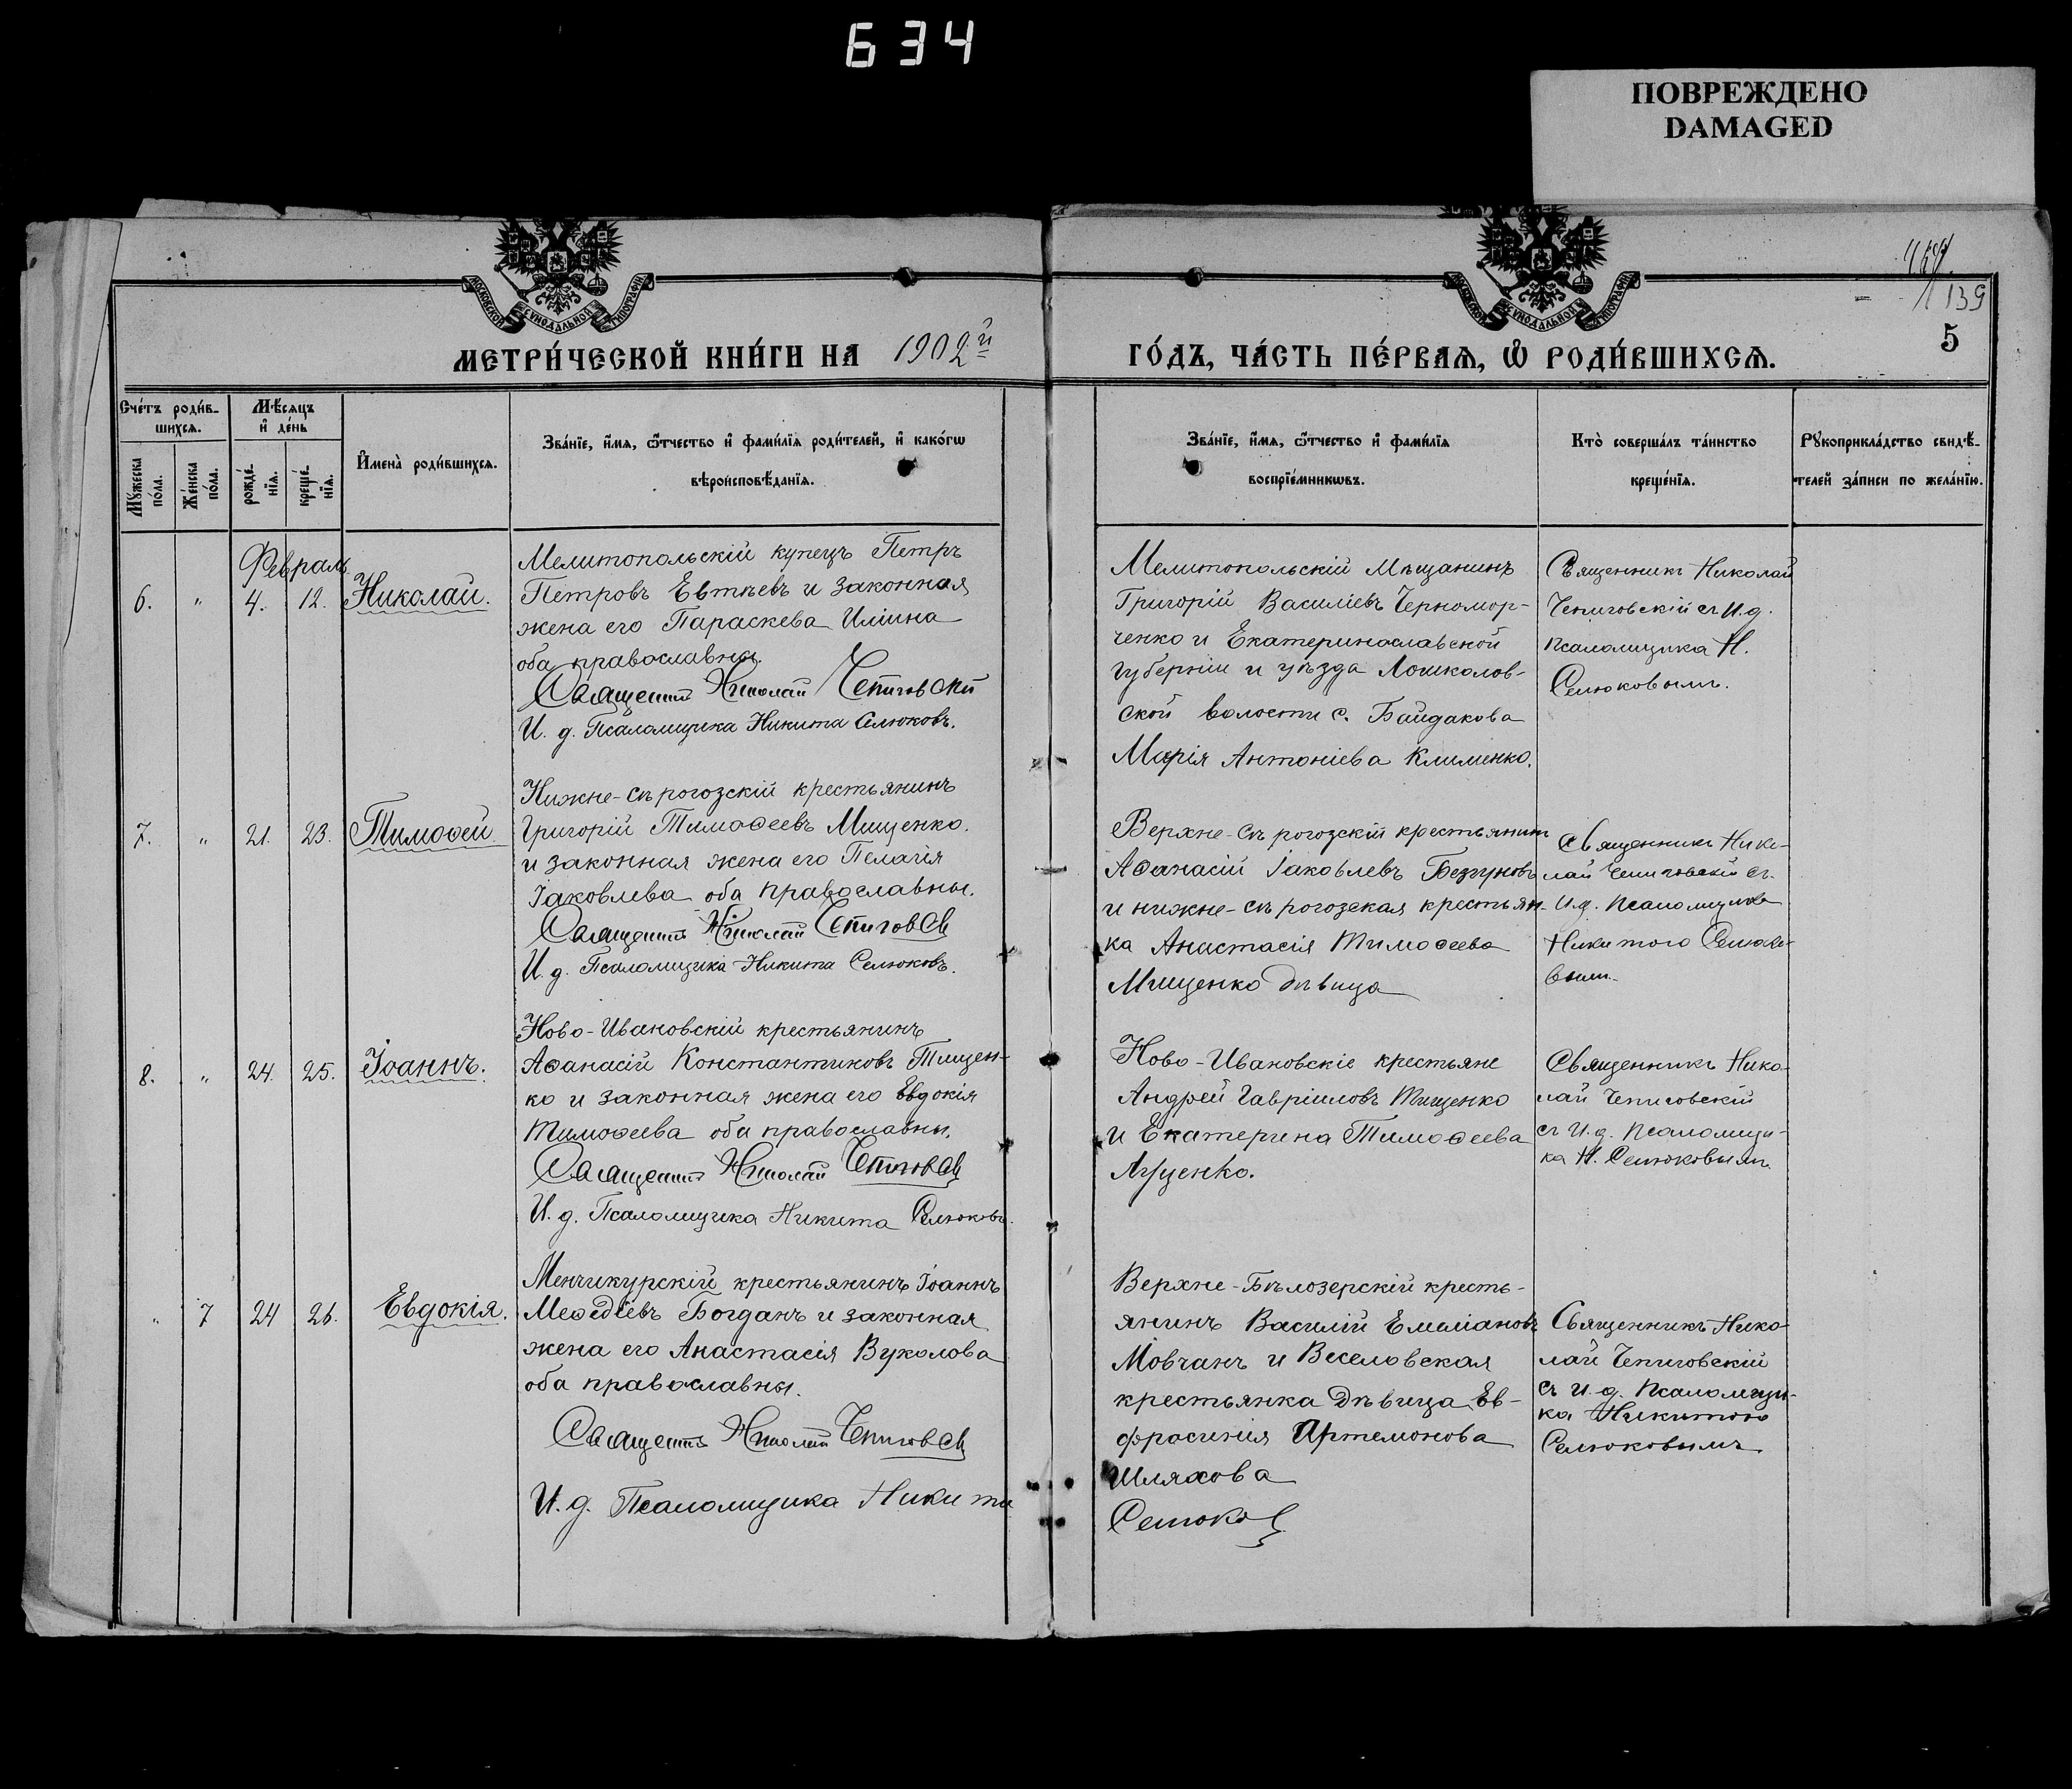 634
ПОВРЕЖДЕНО
DAMAGED
МОСКОВСКОЙ СѴНОДАЛЬНОЙ ТИПОГРАФІИ
МОСКОВСКОЙ СѴНОДАЛЬНОЙ ТИПОГРАФІИ
139
5
МЕТРИ́ЧЕСКОЙ КНИ́ГИ НА 1902й
ГО́ДЪ, ЧА́СТЬ ПЕ́РВАѦ, Ѿ РОДИ́ВШИХСѦ.
Сче́тъ роди́в-
шихсѧ.
Мѣ́сѧцъ
и҆ де́нь
Мꙋ́жеска
по́ла.
Же́нска
по́ла.
рожде́-
нїѧ.
креще́-
нїѧ.
И҆мена̀ роди́вшихсѧ.
Зва́нїе, и҆́мѧ, ѻ҆́тчество и҆ фами́лїѧ роди́телей, и҆ како́гѡ
вѣроисповѣ́данїѧ.
Зва́нїе, и҆́мѧ, ѻ҆́тчество и҆ фами́лїѧ
воспрїе́мникѡвъ.
Кто̀ соверша́лъ та́инство
креще́нїѧ.
Рꙋкоприкла́дство свидѣ́-
телей за́писи по жела́нїю.
Февраль
6. " 4. 12. Николай.
Мелитопольскій купецъ Петръ
Петровъ Евтѣевъ и законная
жена его Параскева Иліина
оба православны.
Священникъ Николай Чепиговскій
И. д. Псаломщика Никита Селюковъ.
Мелитопольскій Мѣщанинъ
Григорій Василіевъ Черномор-
ченко и Екатеринославской
губерніи и уѣзда Лошколов-
ской волости с. Байдакова
Марія Антоніева Клименко.
Священникъ Николай
Чепиговскій съ И.д.
псаломщика Н.
Селюковымъ.
7. " 21. 23. Тимоѳей
Нижне-Сѣрогозскій крестьянинъ
Григорій Тимоѳеевъ Мищенко.
и законная жена его Пелагія
Іаковлева оба православны.
Священникъ Николай Чепиговскій
И. д. Псаломщика Никита Селюковъ.
Верхне-Сѣрогозскій крестьянинъ
Аѳанасій Іаковлевъ Безгуновъ
и нижне-сѣрогозская крестьян-
ка Анастасія Тимоѳеева
Мищенко дѣвица
Священникъ Нико-
лай Чепиговскій съ
И.д. Псаломщика
Никитою Селюко-
вым.
8. " 24. 25. Іоаннъ.
Ново-Ивановскій крестьянинъ
Аѳанасій Константиновъ Тищен-
ко и законная жена его Евдокія
Тимоѳеева оба православны.
Священникъ Николай Чепиговскій
И. д. Псаломщика Никита Селюковъ.
Ново-Ивановскіе крестьяне
Андрей Гавріиловъ Тищенко
и Екатерина Тимоѳеева
Луценко.
Священникъ Нико-
лай Чепиговскій
съ И.д. Псаломщи-
ка Н. Селюковымъ.
" 7 24 26. Евдокія.
Менчикурскій крестьянинъ Іоаннъ
Меѳодіевъ Богданъ и законная
жена его Анастасія Вуколова
оба православны.
Священникъ Николай Чепиговскій
И. д. Псаломщика Никита
Верхне-Бѣлозерскій кресть-
янинъ Василій Емеліановъ
Мовчанъ и Веселовская
крестьянка дѣвица Ев-
фросинія Артемонова
Шляхова
Селюковъ
Священникъ Нико-
лай Чепиговскій
съ И.д. Псаломщи-
ка Никитою
Селюковымъ